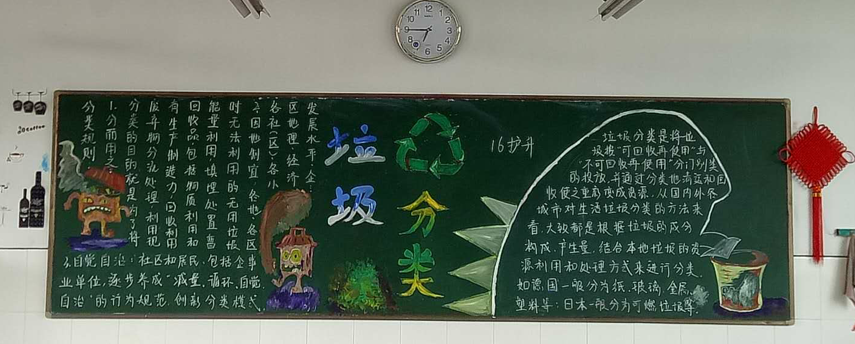 分类规则
1.分而用之:
分类的目的就是为了将
废弃物分流处理,利用现
有生产制造力,回收利用
回收品,包括物质利用和
能量利用,填埋处置暂
时无法利用的无用垃圾
2.因地制宜:各地、各区
各社(区)、各小
区地理、经济
发展水平、企
3.自觉自治:社区和居民,包括企事
业单位,逐步养成"减量、循环、自觉
自治"的行为规范,创新分类模式
垃圾
分类
16护升
垃圾分类是将垃
圾按"可回收再使用"与
"不可回收再使用"分门别类
的投放,并通过分类地清运和回
收使之重新变成资源,从国内外各
城市对生活垃圾分类的方法来
看,大致都是根据垃圾的成分
构成、产生量,结合本地垃圾的资
源利用和处理方式来进行分类
如德国一般分为纸、玻璃、金属、
塑料等;日本一般分为可燃垃圾等.